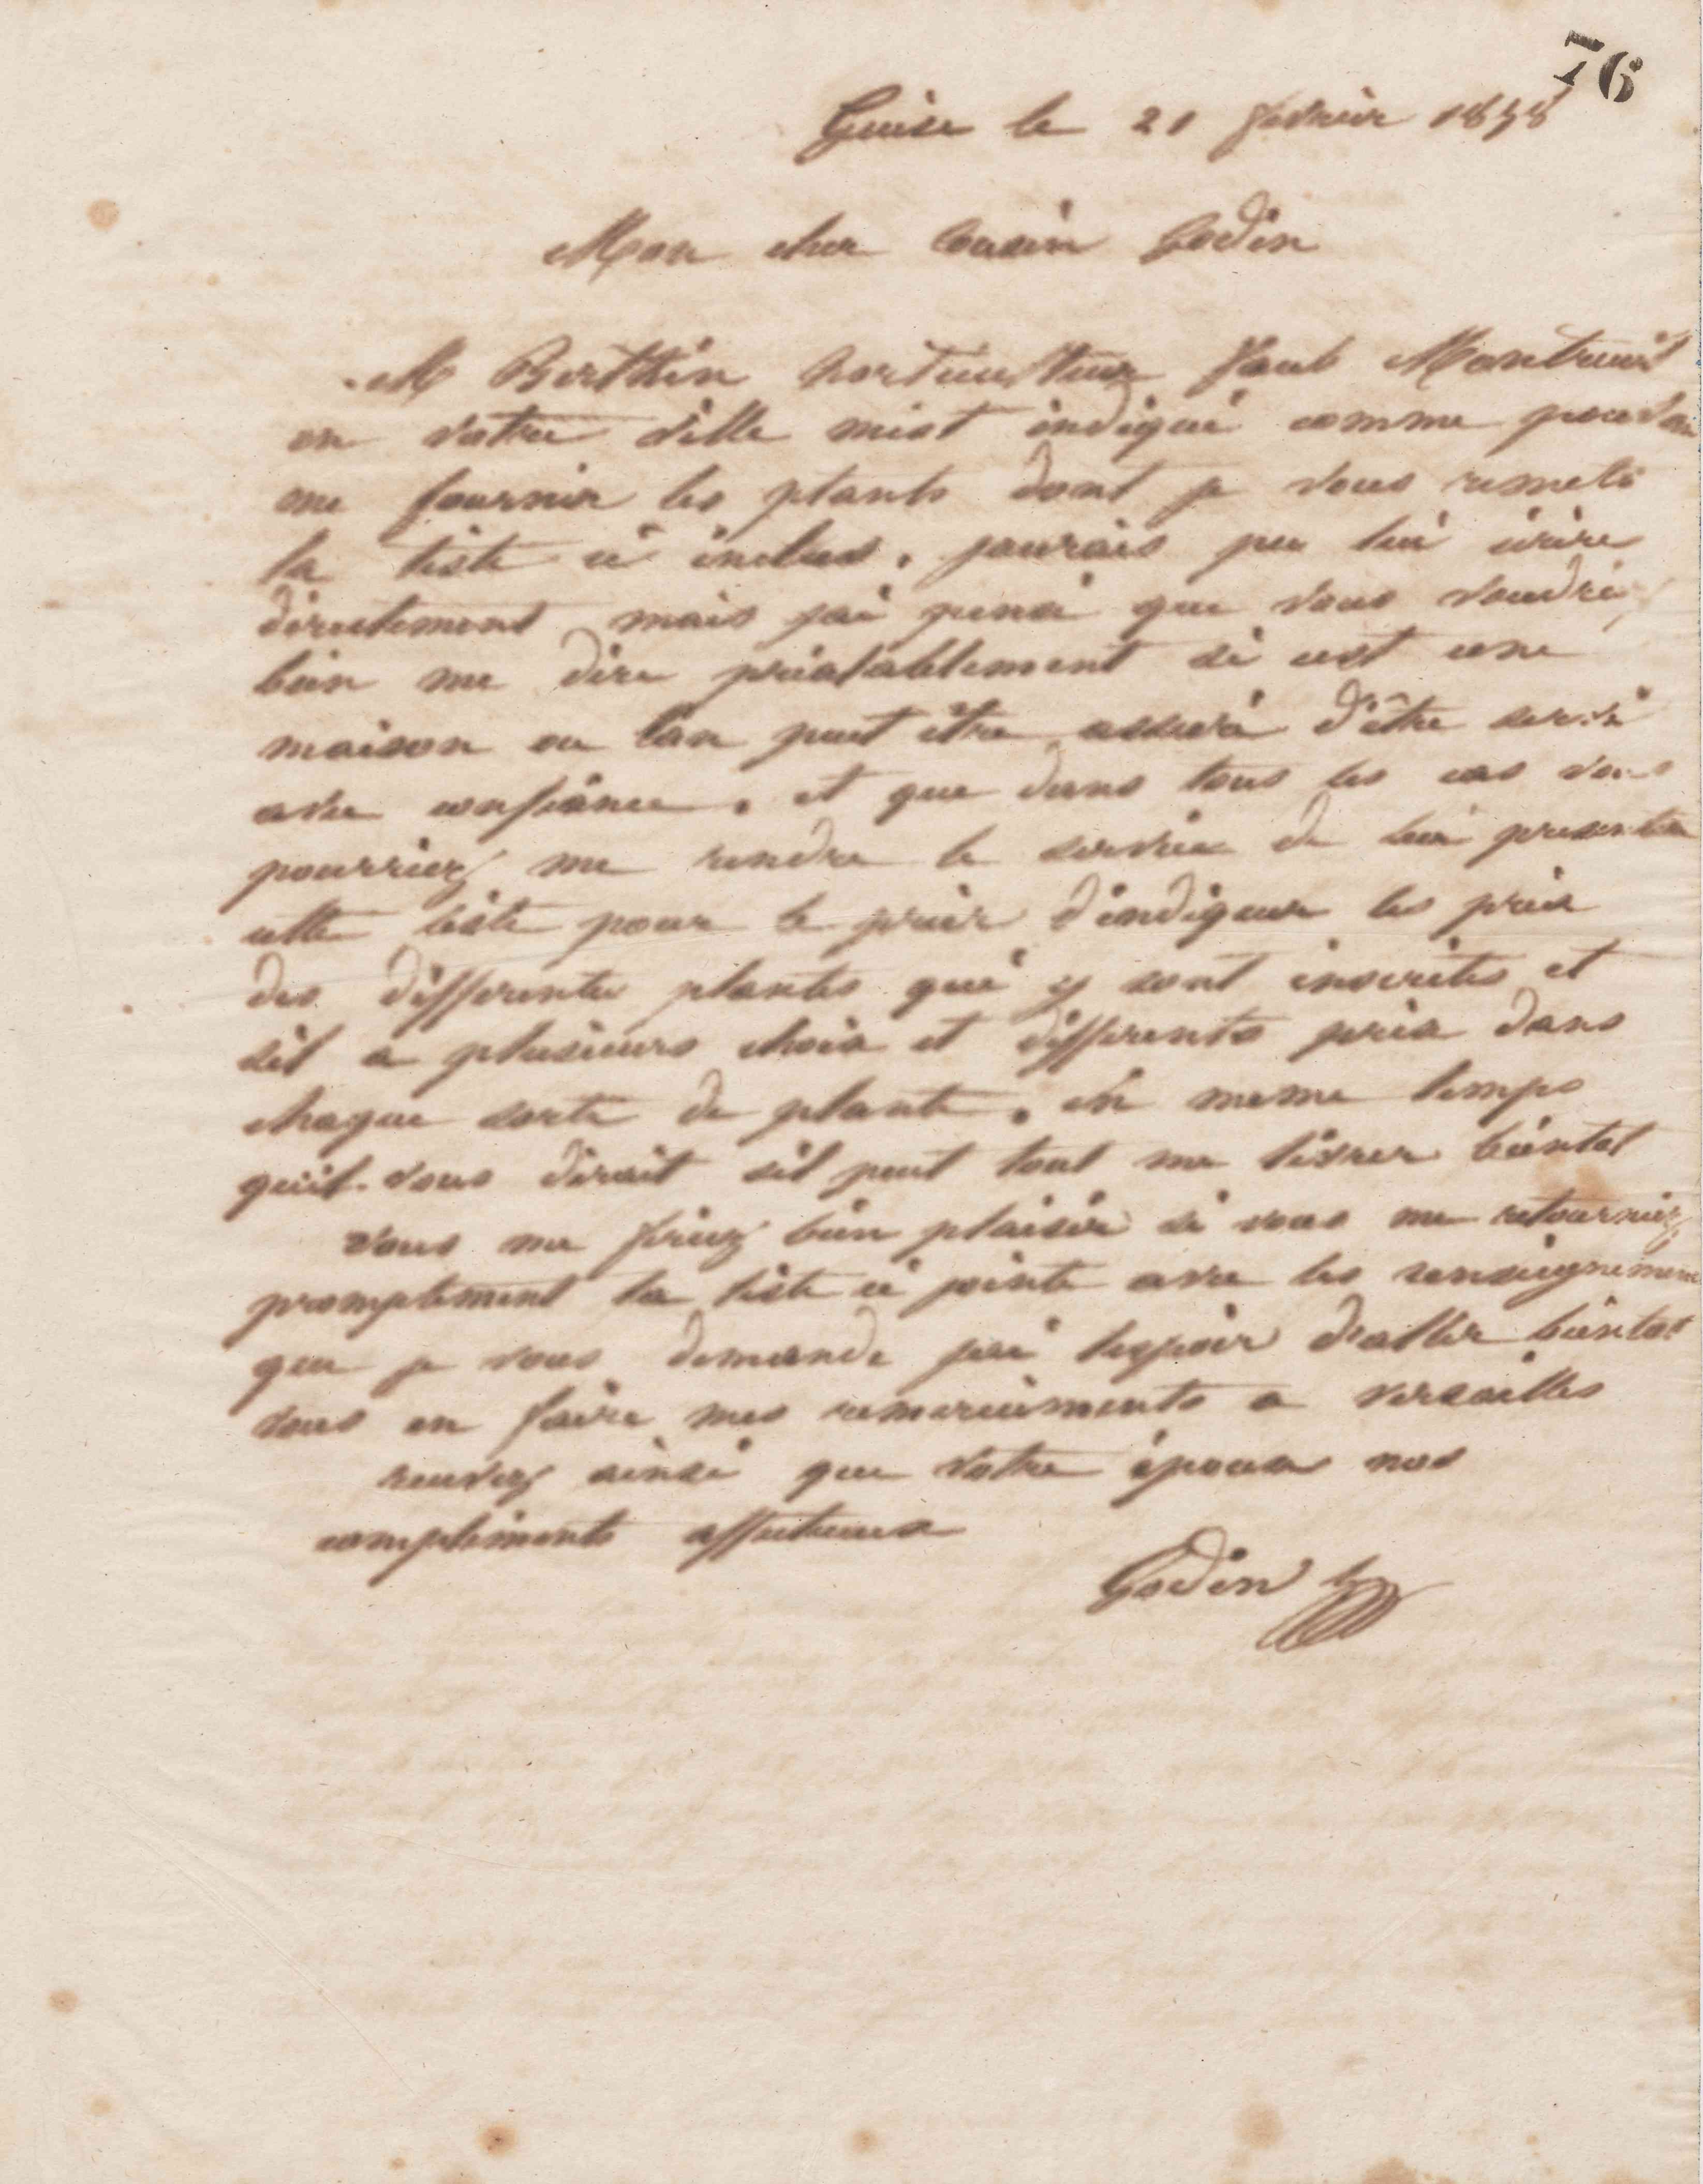 76
Guise le 21 fevrier 1858
Mon cher Cousin Godin
M Berthin horticulteur faub Montreuil
en votre ville m'est indiqué comme pouvan
me fournir les plants dont je vous remets
la liste ci inclus. jaurais pu lui écrire
directement mais jai pensé que vous voudriez
bien me dire préalablement si cest une
maison ou lon peut être assuré d'être servi
avec confiance. et que dans tous les cas vous
pourriez me rendre le service de lui presenter
cette liste pour le prier d'indiquer les prix
des differentes plantes qui y sont inscrites et
sil a plusieurs choix et differents prix dans
chaque sorte de plante. en meme temps
quil vous dirait sil peut tout me livrer bientot
vous me feriez bien plaisir si vous me retourniez
promptement la liste ci jointe avec les renseignemens
que je vous demande jai lespoir d'aller bientot
vous en faire mes remerciements a versailles
recevez ainsi que votre épouse nos
compliments affectueux
Godin